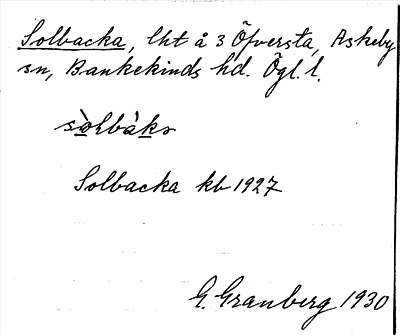 Solbacka, lht å 3 Öfversta, Askeby
sn, Bankekinds hd. Ögl. l.
sòlbàka
Solbacka kb 1927
G. Granberg 1930